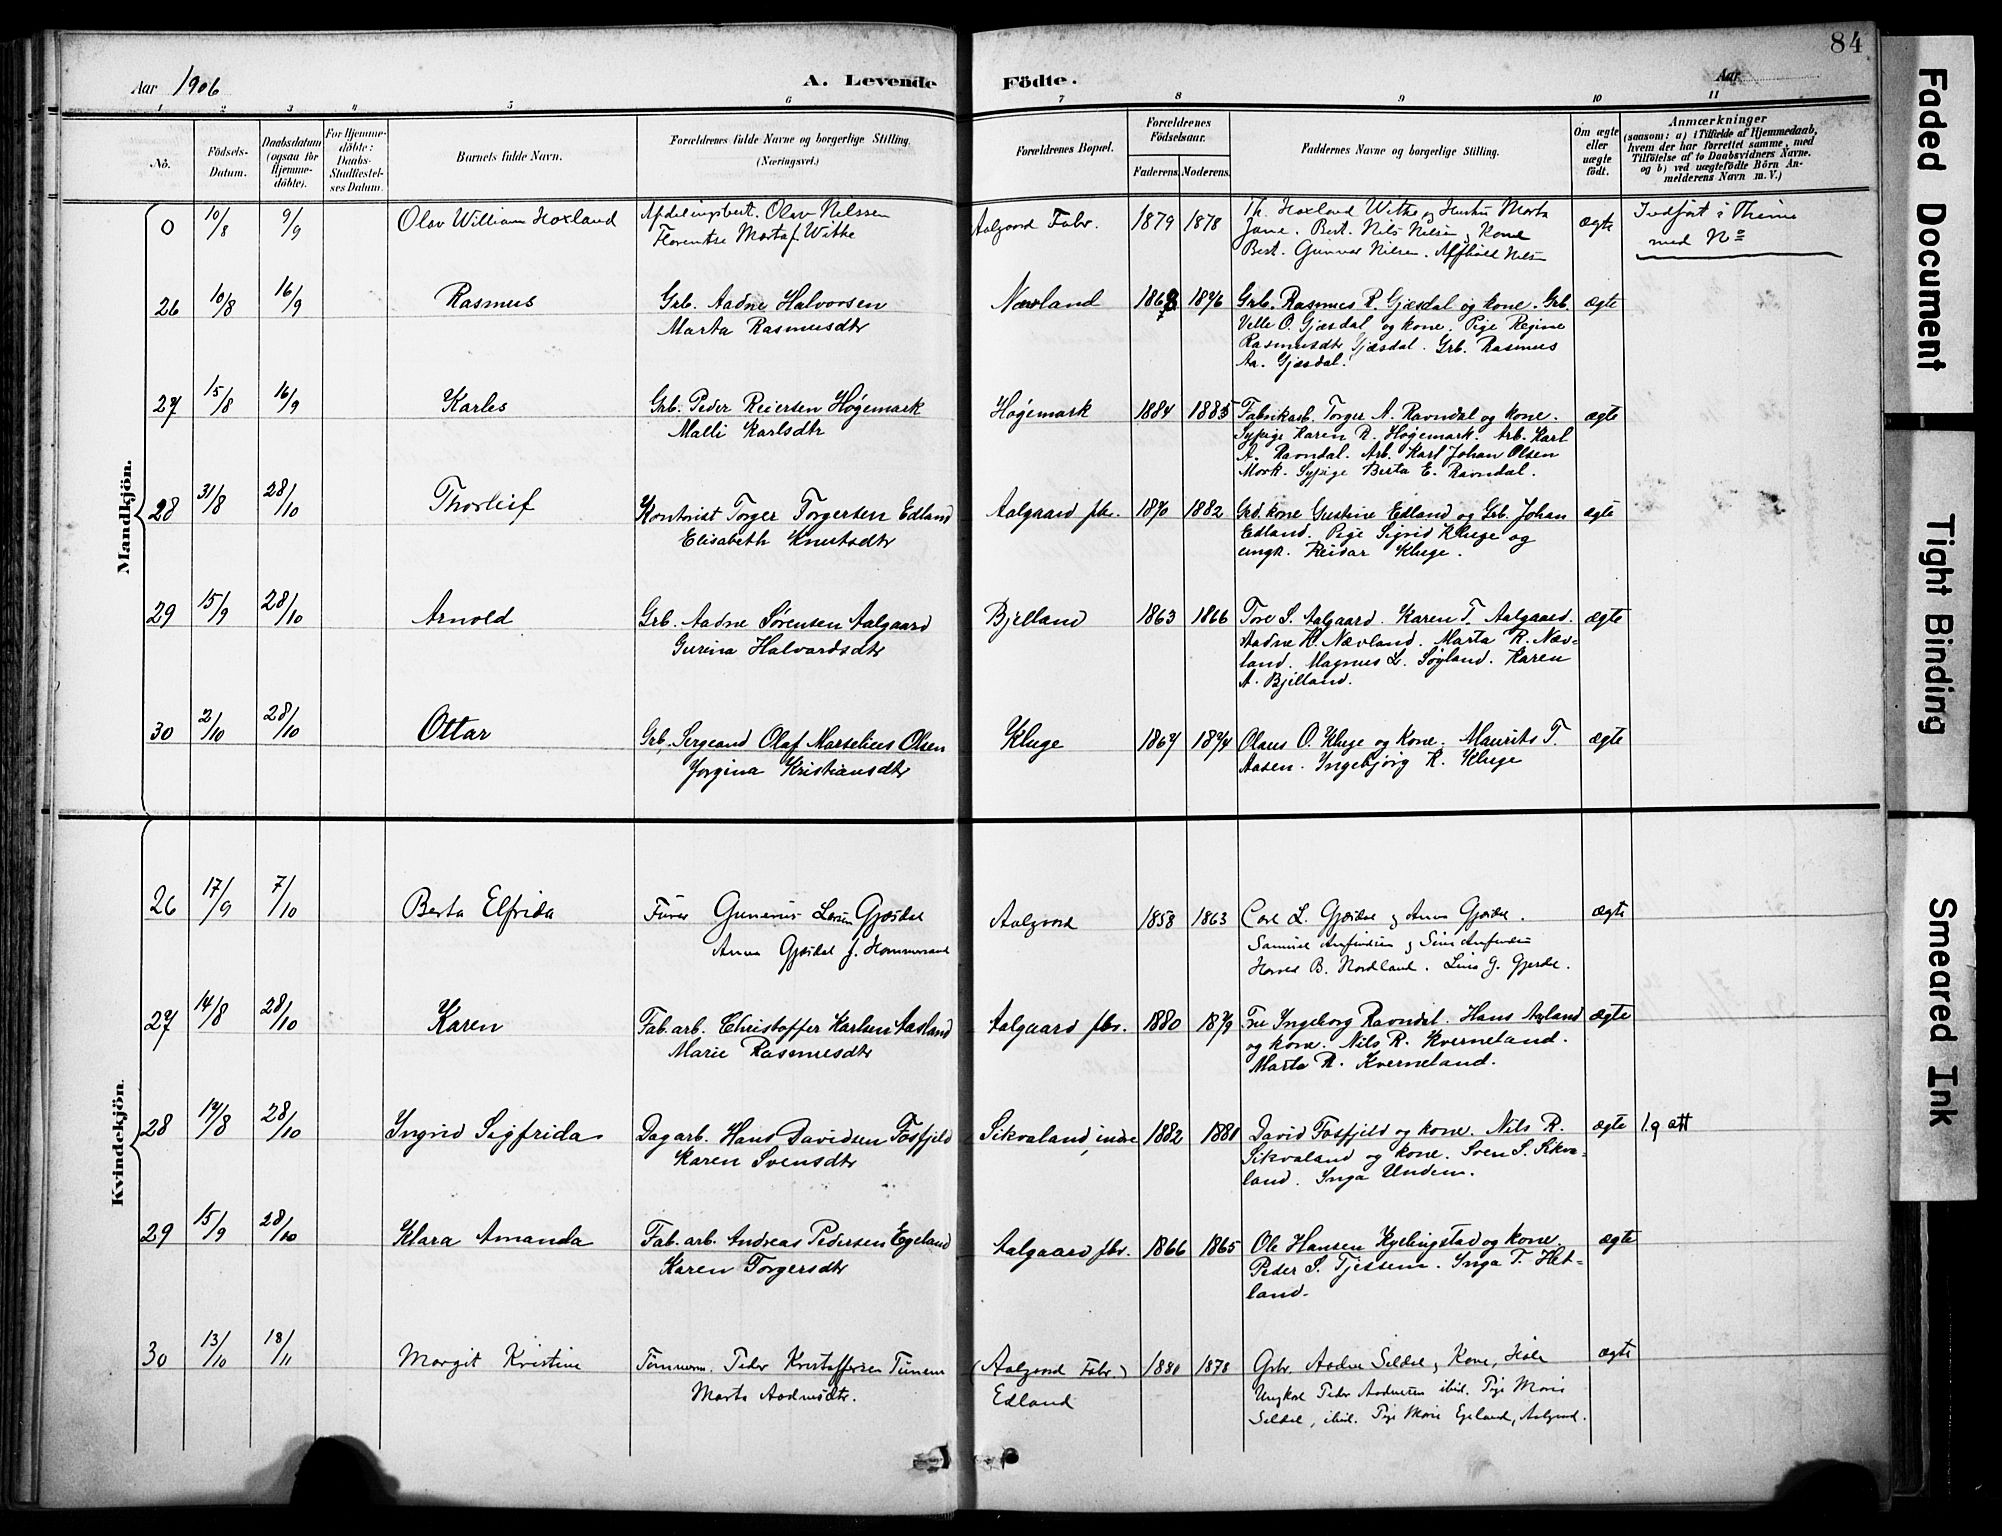 84
Aar 1906
A. Levende Födte.
Aar
1 2 3 4 5 6 7 8 9 10 11
No.
Födsels-Datum.
Daabsdatum (ogsaa for Hjemmedöbte).
For Hjemmedöbte: Daabs-Stadfæstelses Datum.
Barnets fulde Navn.
Forældrenes fulde Navne og borgerlige Stilling. (Næringsvei.)
Forældrenes Bopæl.
Forældrenes Födselsaar.
Faderens. Moderens.
Faddernes Navne og borgerlige Stilling.
Om ægte eller uægte födt.
Anmærkninger
(saasom: a) i Tilfælde af Hjemmedaab, hvem der har forrettet samme, med Tilföielse af to Daabsvidners Navne. og b) ved uægtefödte Börn Anmelderens Navn m. V.)
Mandkjön.
0 10/8 9/9 Olav William Hoxland Afdelingsbest. Olav Nilssen Aalgaard Fabr. 1879 1878 Th. Hoxland Witke og Hustru Marta ægte Indført i Thime
Florentse Marta f Witke Jane. Best. Nils Nilsen og Kone med No
Best. Gunnar Nilsen.
26 10/8 16/9 Rasmus Grb. Aadne Halvorsen Nævland 1868 1876 Grb. Rasmus R. Gjæsdal og kone. Grb. ægte
Marta Rasmusdtr Velle O. Gjæsdal og kone. Pige Regine
Rasmusdtr Gjæsdal. Grb. Rasmus
Aa. Gjæsdal.
27 15/8 16/9 Karles Grb. Peder Reiersen Høgemark Høgemark 1884 1885 Fabrikarb. Torger A. Ravndal og kone. ægte
Malli Karlsdtr Sypige Karen R. Høgemark. Arb. Karl
A. Ravndal. Arb. Karl Johan Olsen
Mork. Sypige Berta E. Ravndal.
28 31/8 28/10 Thorleif Kontorist Torger Torgersen Edland Aalgaard fbr. 1870 1882 Grd. kone Gustine Edland og Grb. Johan ægte
Elisabeth Knutsdtr Edland. Pige Sigrid Kluge og
ungk. Reidar Kluge.
29 15/9 28/10 Arnold Grb. Aadne Sørensen Aalgaard Bjelland 1863 1866 Tore S. Aalgaard. Karen T. Aalgaard. ægte
Gurina Halvardsdtr Aadne H. Nævland. Marta R. Næv-
land. Magnus L. Søyland. Karen
A. Bjelland.
30 2/10 28/10 Ottar Grb. Sergeand Olaf Marselius Olsen Kluge 1867 1874 Olaus O. Kluge og kone. Maurits T. ægte
Jorgina Kristiansdtr Aasen. Ingebjørg K. Kluge
Kvindekjön.
26 17/9 7/10 Berta Elfrida Gunerius Gjæsdal Aalgaard 1858 1863 Carl L. Gjæsdal og Anna Gjæsdal. ægte
Anna Gjæsdal f. Hommersand Samuel Anfindsen og Anfindsen
B. Nordland. Lina G. Gjesdal.
27 14/8 28/10 Karen Fab. arb. Christoffer Karlsen Aasland Aalgaard fbr. 1880 1879 Fru Ingeborg Ravndal. Hans Aasland ægte
Marie Rasmusdtr og kone. Nils R. Kverneland.
Marta R. Kverneland.
28 17/8 28/10 Yngrid Sigfrida Dagarb. Hans Davidsen Fosfjeld Sikvaland, indre 1882 1881 David Fosfjeld og kone. Nils R. ægte 1.g ått
Karen Svensdtr Sikvaland og kone. Sven S. Sikva-
land. Inga Undem.
29 15/9 28/10 Klara Amanda Fab. arb. Andreas Pedersen Egeland Aalgaard fbr. 1866 1865 Ole Hansen Kyllingstad og kone. ægte
Karen Torgersdtr Peder S. Tjessem. Inga T. Het-
land.
30 13/10 18/11 Margit Kristine Tømmerm. Peder Kristoffersen Tunem (Aalgaard Fabr.) 1880 1878 Grbr. Aadne Seldal og Kone, Høle ægte
Marta Aadnesdtr. Edland Ungkarl Peder Aadnesen ibid. Pige Marie
Seldal, ibid. Pige Marie Egeland, Aalgaard.
Faded Document
Tight Binding
Smeared Ink